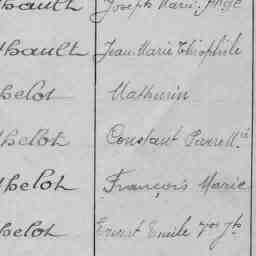 hault Joseph Marie Ange
hault Jean Marie Théophile
helot Mathurin
helot Constant Pierre M.ie
helot François Marie
helot Ernest Emile